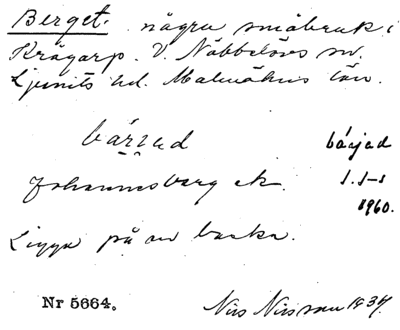 Berget. några småbruk i
Krågarp. V. Nöbbelövs sn.
Ljunits hd. Malmöhus län.
bárjad
bárjad
Johannesberg ek. 1.1-1
1960.
Ligga på en backe.
Nr 5664. Nils Nilsson 1934.